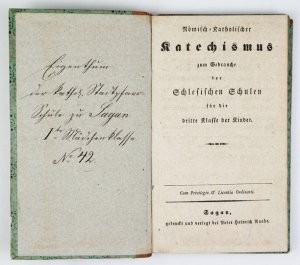 Eigenthum
der kathol. Stadtpfarr-
Schule zu Sagan
I te Mädchenklasse
No 42.
Römisch-Katholischer
Katechismus
zum Gebrauche
der
Schlesischen Schulen
für die
dritte Klasse der Kinder.
Cum Privilegio & Licentia Ordinarii.
Sagan,
gedruckt und verlegt bei Peter Heinrich Raabe.